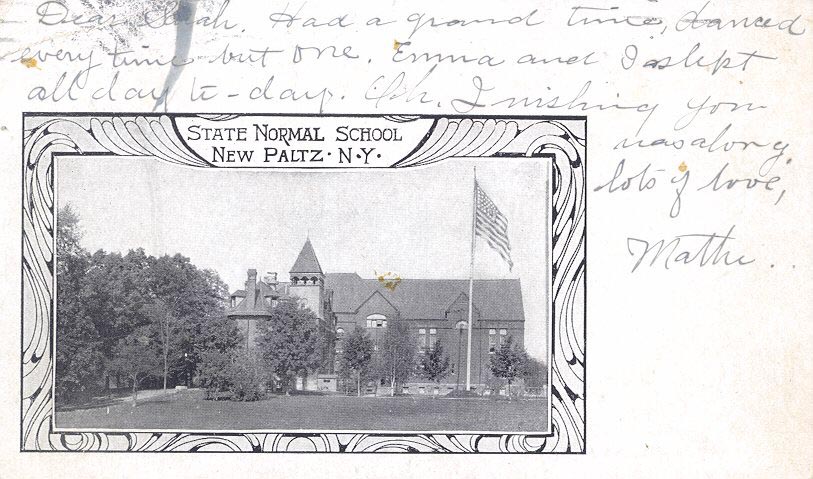 Dear Sarah. Had a grand time, danced
every time but one. Emma and I slept
all day to-day. Oh, I wishing you
was along.
lots of love,
STATE NORMAL SCHOOL
NEW PALTZ · N·Y·